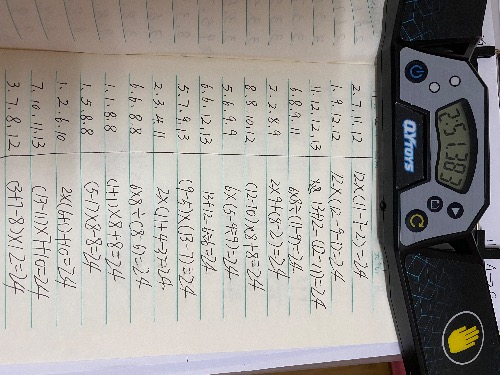 2.7.11.12 12×(11-7-2)=24
1.9.12.12 12×(12-9-1)=24
11.12.12.13 13+12-(12-11)=24
6.8.9.11 6×8÷(11-9)=24
2.2.8.9 2×9+(8-2)=24
8.8.10.12 (12-10)×8+8=24
5.6.9.9 6×(5-9÷9)=24
6.6.12.13 13+12-6÷6=24
5.7.9.13 (9-5)×(13-7)=24
2.3.4.11 2×(11+4-3)=24
6.6.8.8 6×8÷(8-6)=24
1.1.8.8 (1+1)×8+8=24
1.5.8.8 (5-1)×8-8=24
1.2.6.10 2×(1+6)+10=24
7.10.11.13 (13-11)×7+10=24
3.7.8.12 (3+7-8)×12=24
QY TOYS
2:51.383